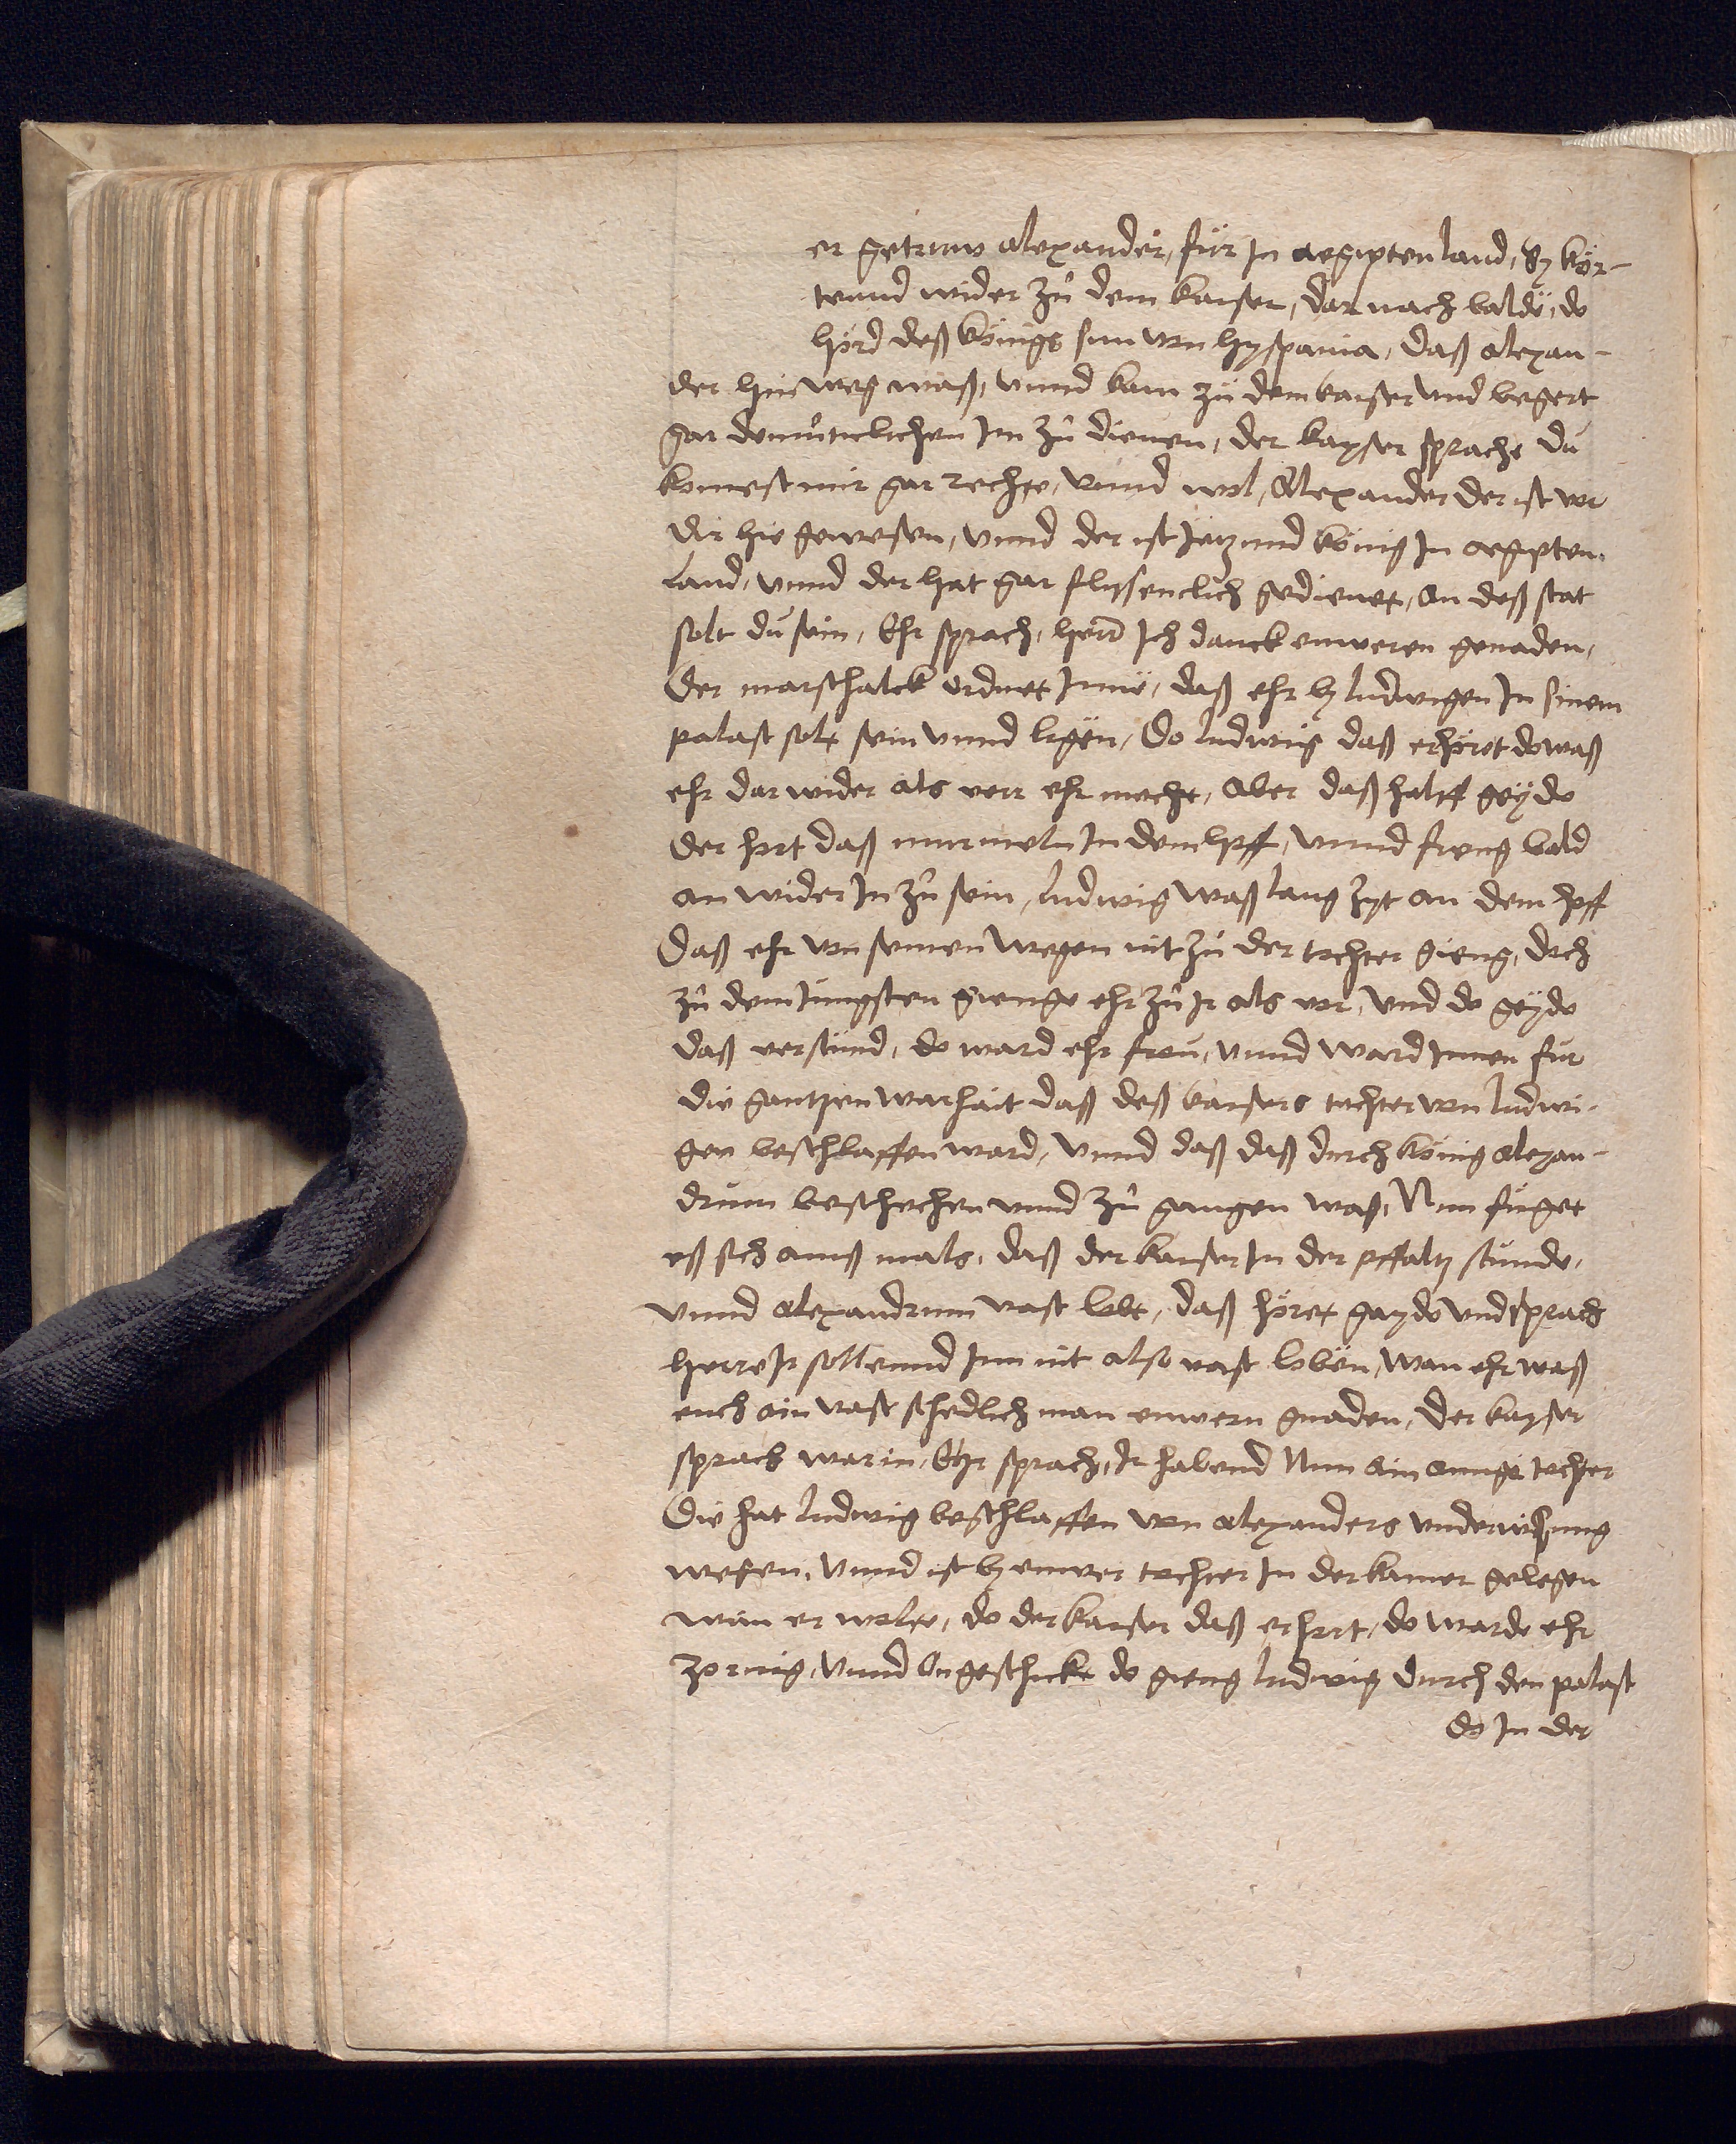 er getruw alexander, für In aegiptenland, Sy kör-
tennd wider zů dem kaiser, dar nach balde, do
hörd deß königs sun von hyspania, daß alexan-
der hin weg waß, vnnd kam zů dem kaiser vnd begert
gar demüticlichen Im zů dienen, der kayser sprache du
komest mir gar rechte, vnnd wol, Alexander der ist vor
dir hie gewesen, vnnd der ist Jetzund könig In aegipten
Land, vnnd der hat gar flyssenclich gedienet, An deß stat
solt du sein, Ehr sprach, herr Ich danck euweren genaden,
Der marschalck ordnet Imme, daß ehr by ludwigen In sinem
palast solt sein vnnd ligen, Do ludwig daß erhöret do waß
ehr dar wider als verr ehr mocht, Aber daß halff geydo
der hort daß murmeln In dem hoff, vnnd fieng bald
an wider In zů sein, ludwig waß lang zyt an dem hoff
Daß ehr von seinen wegen nit zů der tochter gieng, doch
zů dem Jüngsten gienge ehr zů Ir als vor, vnd do geydo
daß verstund, do ward ehr fro, vnnd ward Innen für
die gantzen warhait daß deß kaisers tochter von ludwi-
gen beschlaffen ward, vnnd daß daß durch könig alexan-
drum beschechen vnnd zů gangen waß, Nun füget
eß sich ainß mals, daß der kaiser In der pffaltz stunde,
vnnd alexandrum vast lobt, daß höret gaydo vnd sprach
herre Ir sollennd Inn nit also vast loben, wan ehr waß
euch ain vast schedlich man euwern gnaden, der kayser
sprach warin, Ehr sprach, Ir habend Nun ain ainige tochter
Die hat ludwig beschlaffen von alexanders vnderwisung
wegen, vnnd ist by euwer tochter In der kamer gelegen
wan er wolte, do der kaiser daß erhort, do warde ehr
zornig, vnnd Ongeschickt do gieng ludwig durch den palast
do In der